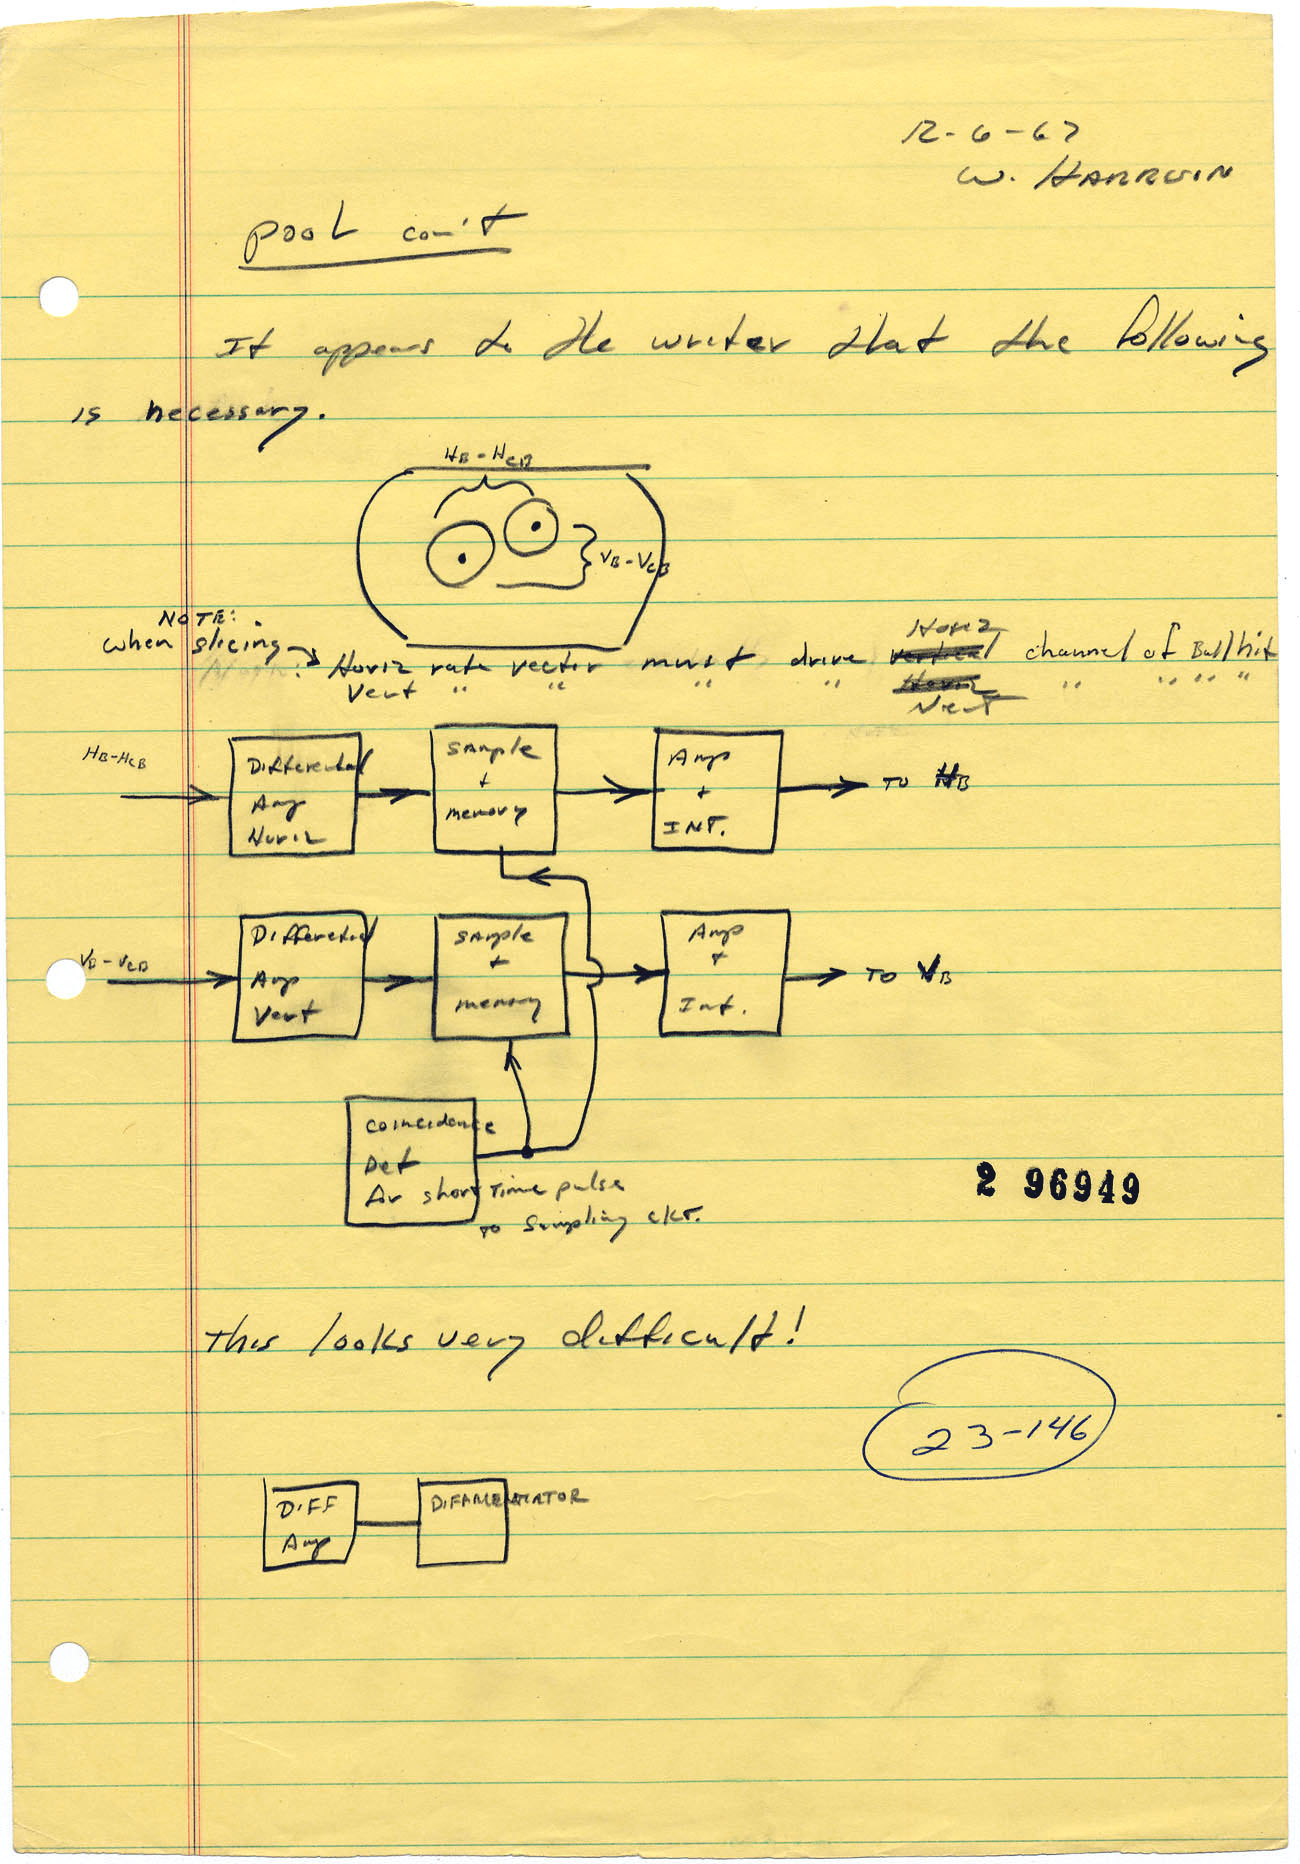 12-6-67
W. HARRISON
Pool con't
It appears to the writer that the following
is necessary.
HB-HCB
VB-VCB
NOTE:
when slicing → Horiz rate vector must drive Horiz channel of Ball hit
Vert " " " " Vert " " " "
HB-HCB
Differential
Amp
Horiz
Sample
+
memory
Amp
+
INT.
TO HB
VB-VCB
Differential
Amp
Vert
Sample
+
memory
Amp
+
Int.
TO VB
Coincidence
Det
for short time pulse
to sampling CKT.
2 96949
This looks very difficult!
23-146
DIFF
Amp
DIFFERENTIATOR